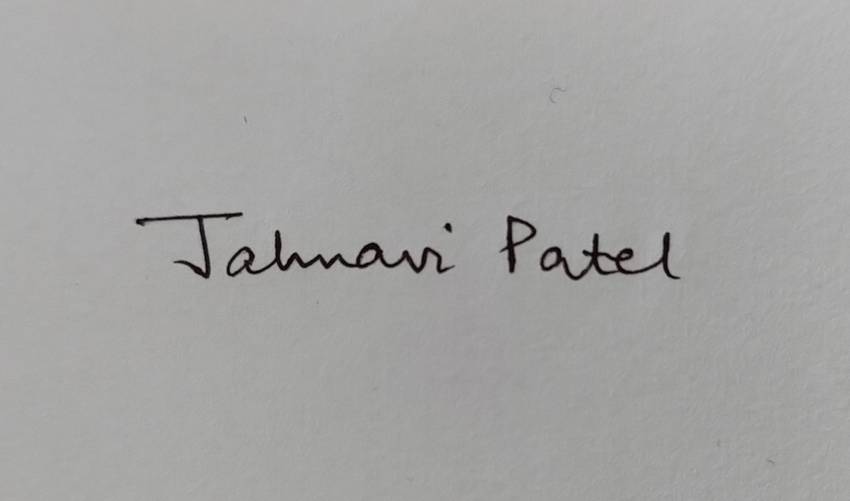 Jahnavi Patel